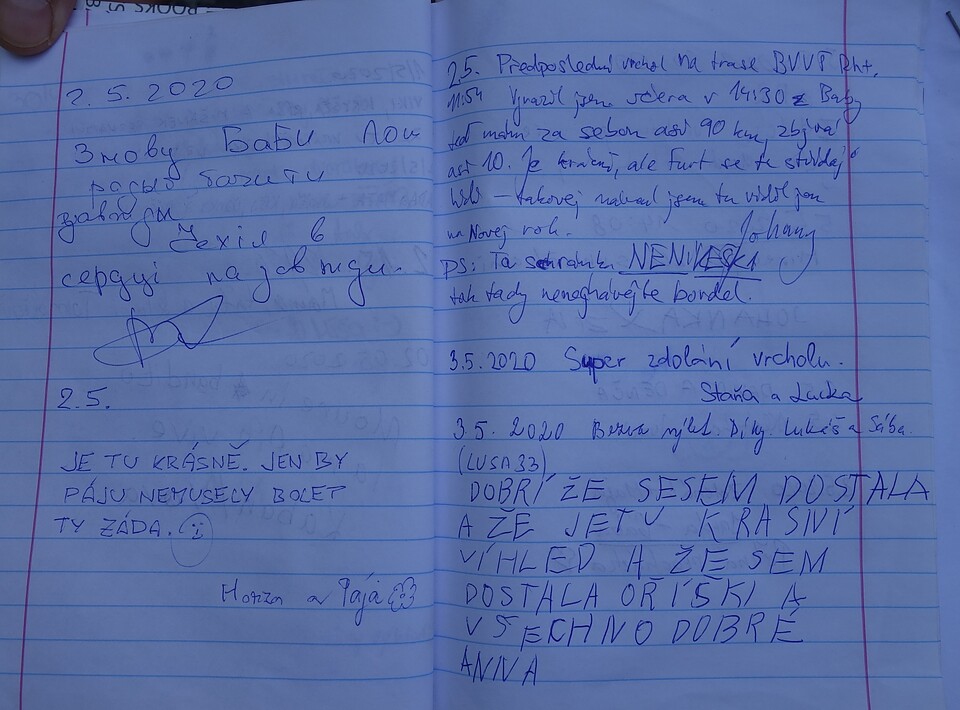 BOOKS
2. 5. 2020
Знову Баби Лон
рогыю
завжды
Чехія в
сердці на завжди.
2.5.
JE TU KRÁSNĚ. JEN BY
PÁJU NEMUSELY BOLET
TY ZÁDA.
Honza a Pája
2.5. Předposlední vrchol na trase BVVT
11:54 Vyrazil jsem včera v 14:30 z Baby
teď mám za sebou asi 90 km, zbývá
asi 10. Je krásně, ale furt se tu střídaj
lidi – takovej nával jsem tu viděl jen
na Novej rok. Johany
PS: Ta schránka NENÍ KEŠKA
tak tady nenechávejte bordel.
3.5.2020 Super zdolání vrcholu.
Staňa a Lucka
3.5. 2020 Bezva výlet. Díky. Lukáš a Sába.
(LUSA33)
DOBRÍ ŽE SESEM DOSTALA
A ŽE JETU KRASNÍ
VÍHLED A ŽE SEM
DOSTALA OŘÍŠKI A
VŠECHNO DOBRÉ
ANNA